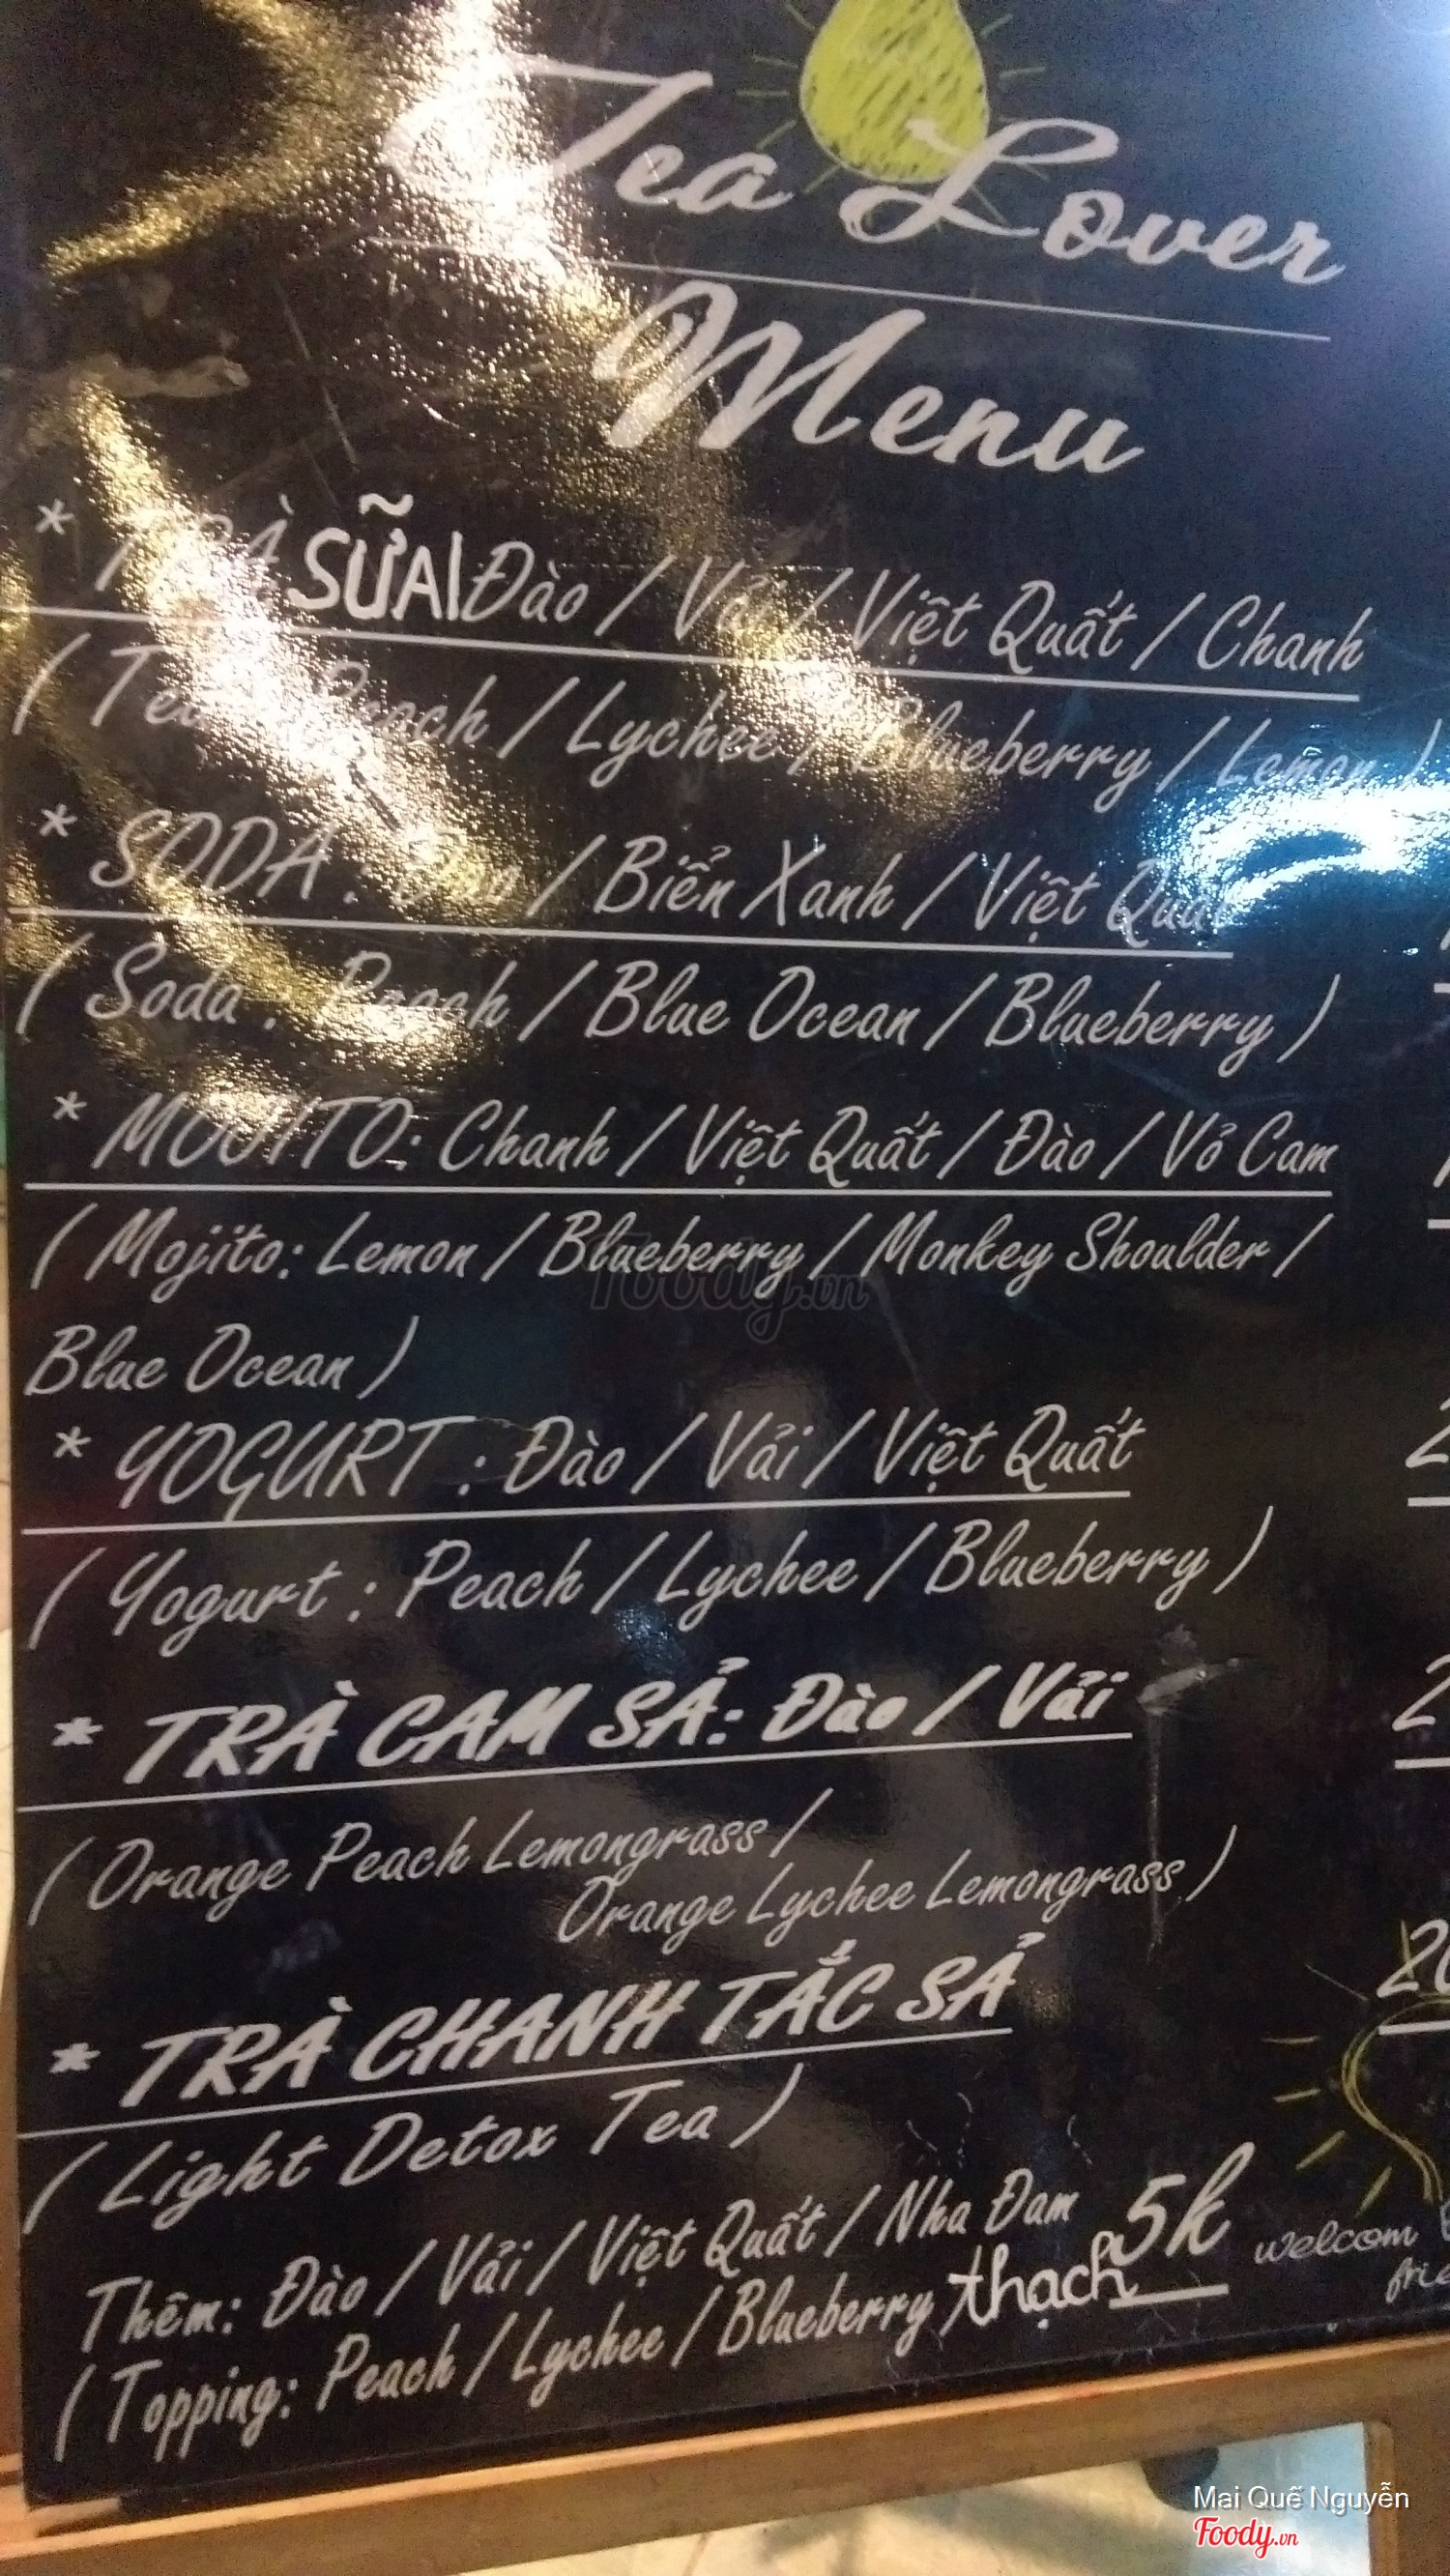 Tea Lover
Menu
* TRÀ SỮA/Đào / Vải / Việt Quất / Chanh
( Tea: Peach / Lychee / Blueberry / Lemon )
* SODA : Đào / Biển Xanh / Việt Quất
( Soda : Peach / Blue Ocean / Blueberry )
* MOJITO: Chanh / Việt Quất / Đào / Vỏ Cam
( Mojito: Lemon / Blueberry / Monkey Shoulder /
Blue Ocean )
* YOGURT : Đào / Vải / Việt Quất
( Yogurt : Peach / Lychee / Blueberry )
* TRÀ CAM SẢ: Đào / Vải
( Orange Peach Lemongrass /
Orange Lychee Lemongrass )
* TRÀ CHANH TẮC SẢ
( Light Detox Tea )
Thêm: Đào / Vải / Việt Quất / Nha Đam 5k
( Topping: Peach / Lychee / Blueberry / thạch
welcom
Foody.vn
Mai Quế Nguyễn
Foody.vn